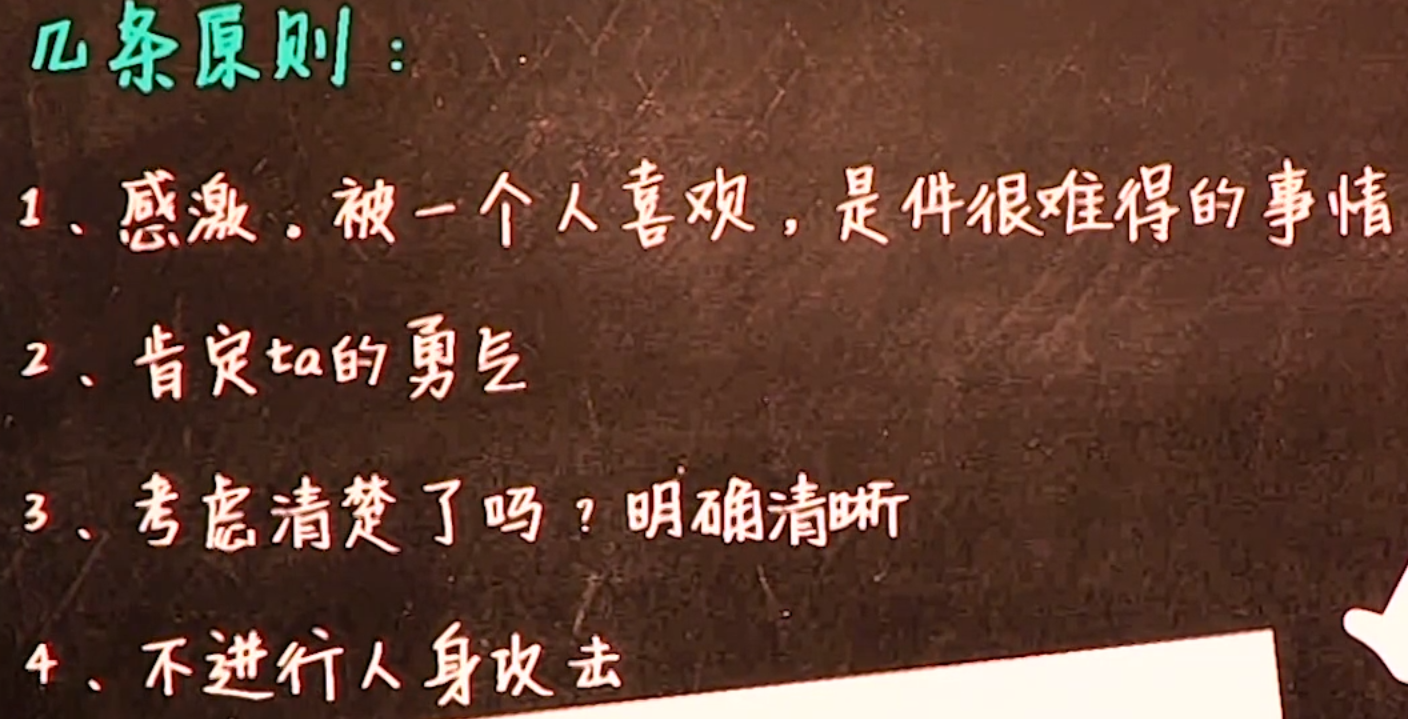 几条原则：
1、感激。被一个人喜欢，是件很难得的事情
2、肯定ta的勇气
3、考虑清楚了吗？明确清晰
4、不进行人身攻击